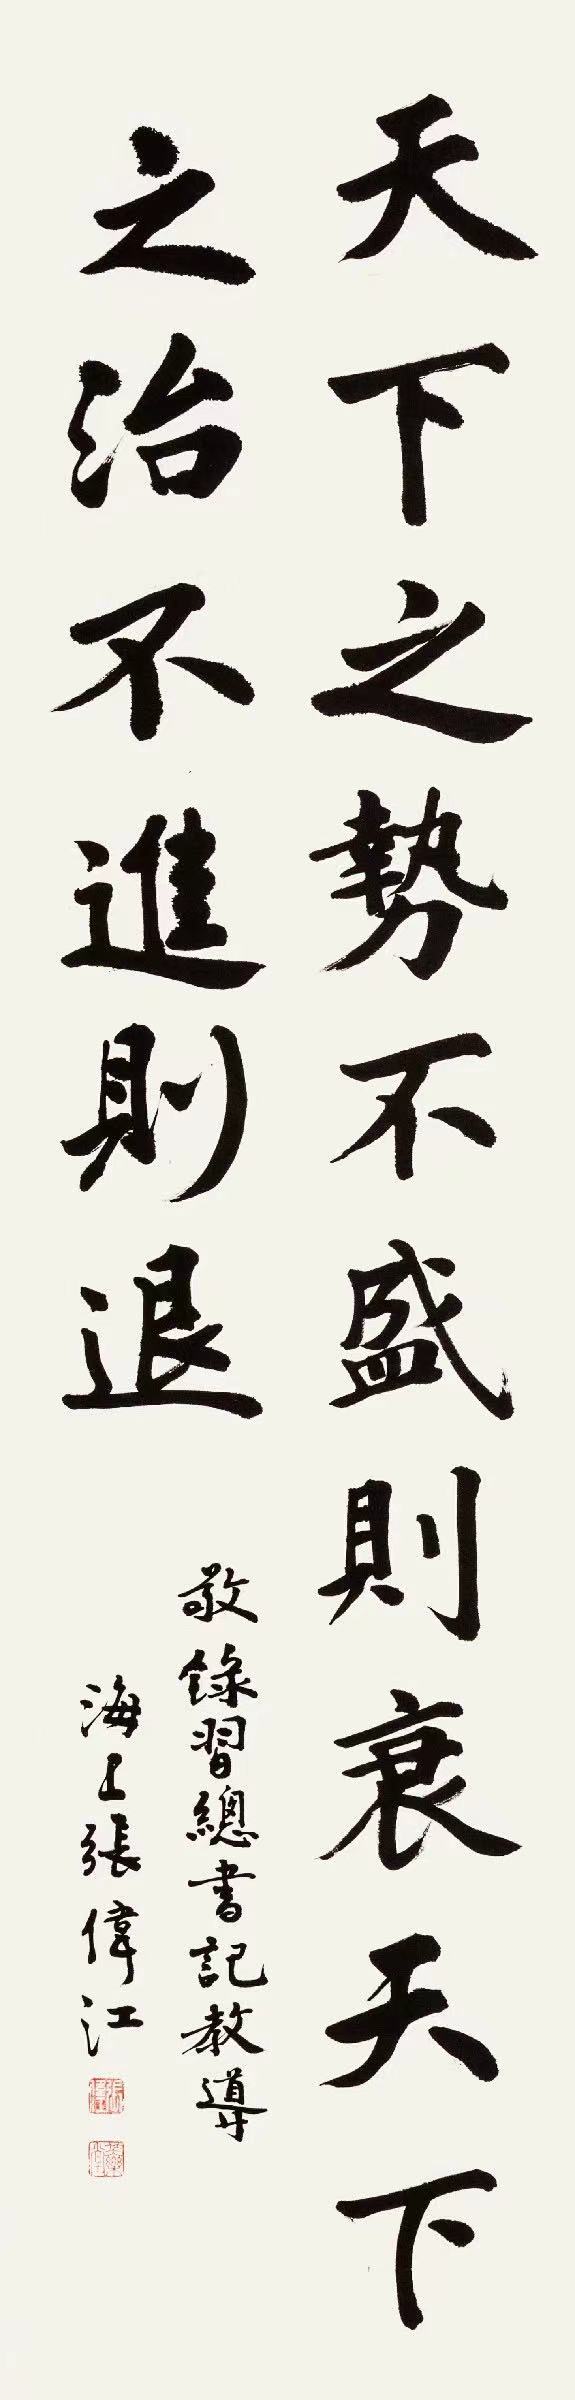 天下之勢不盛則衰天下
之治不進則退
敬錄習總書記教導
海上張偉江